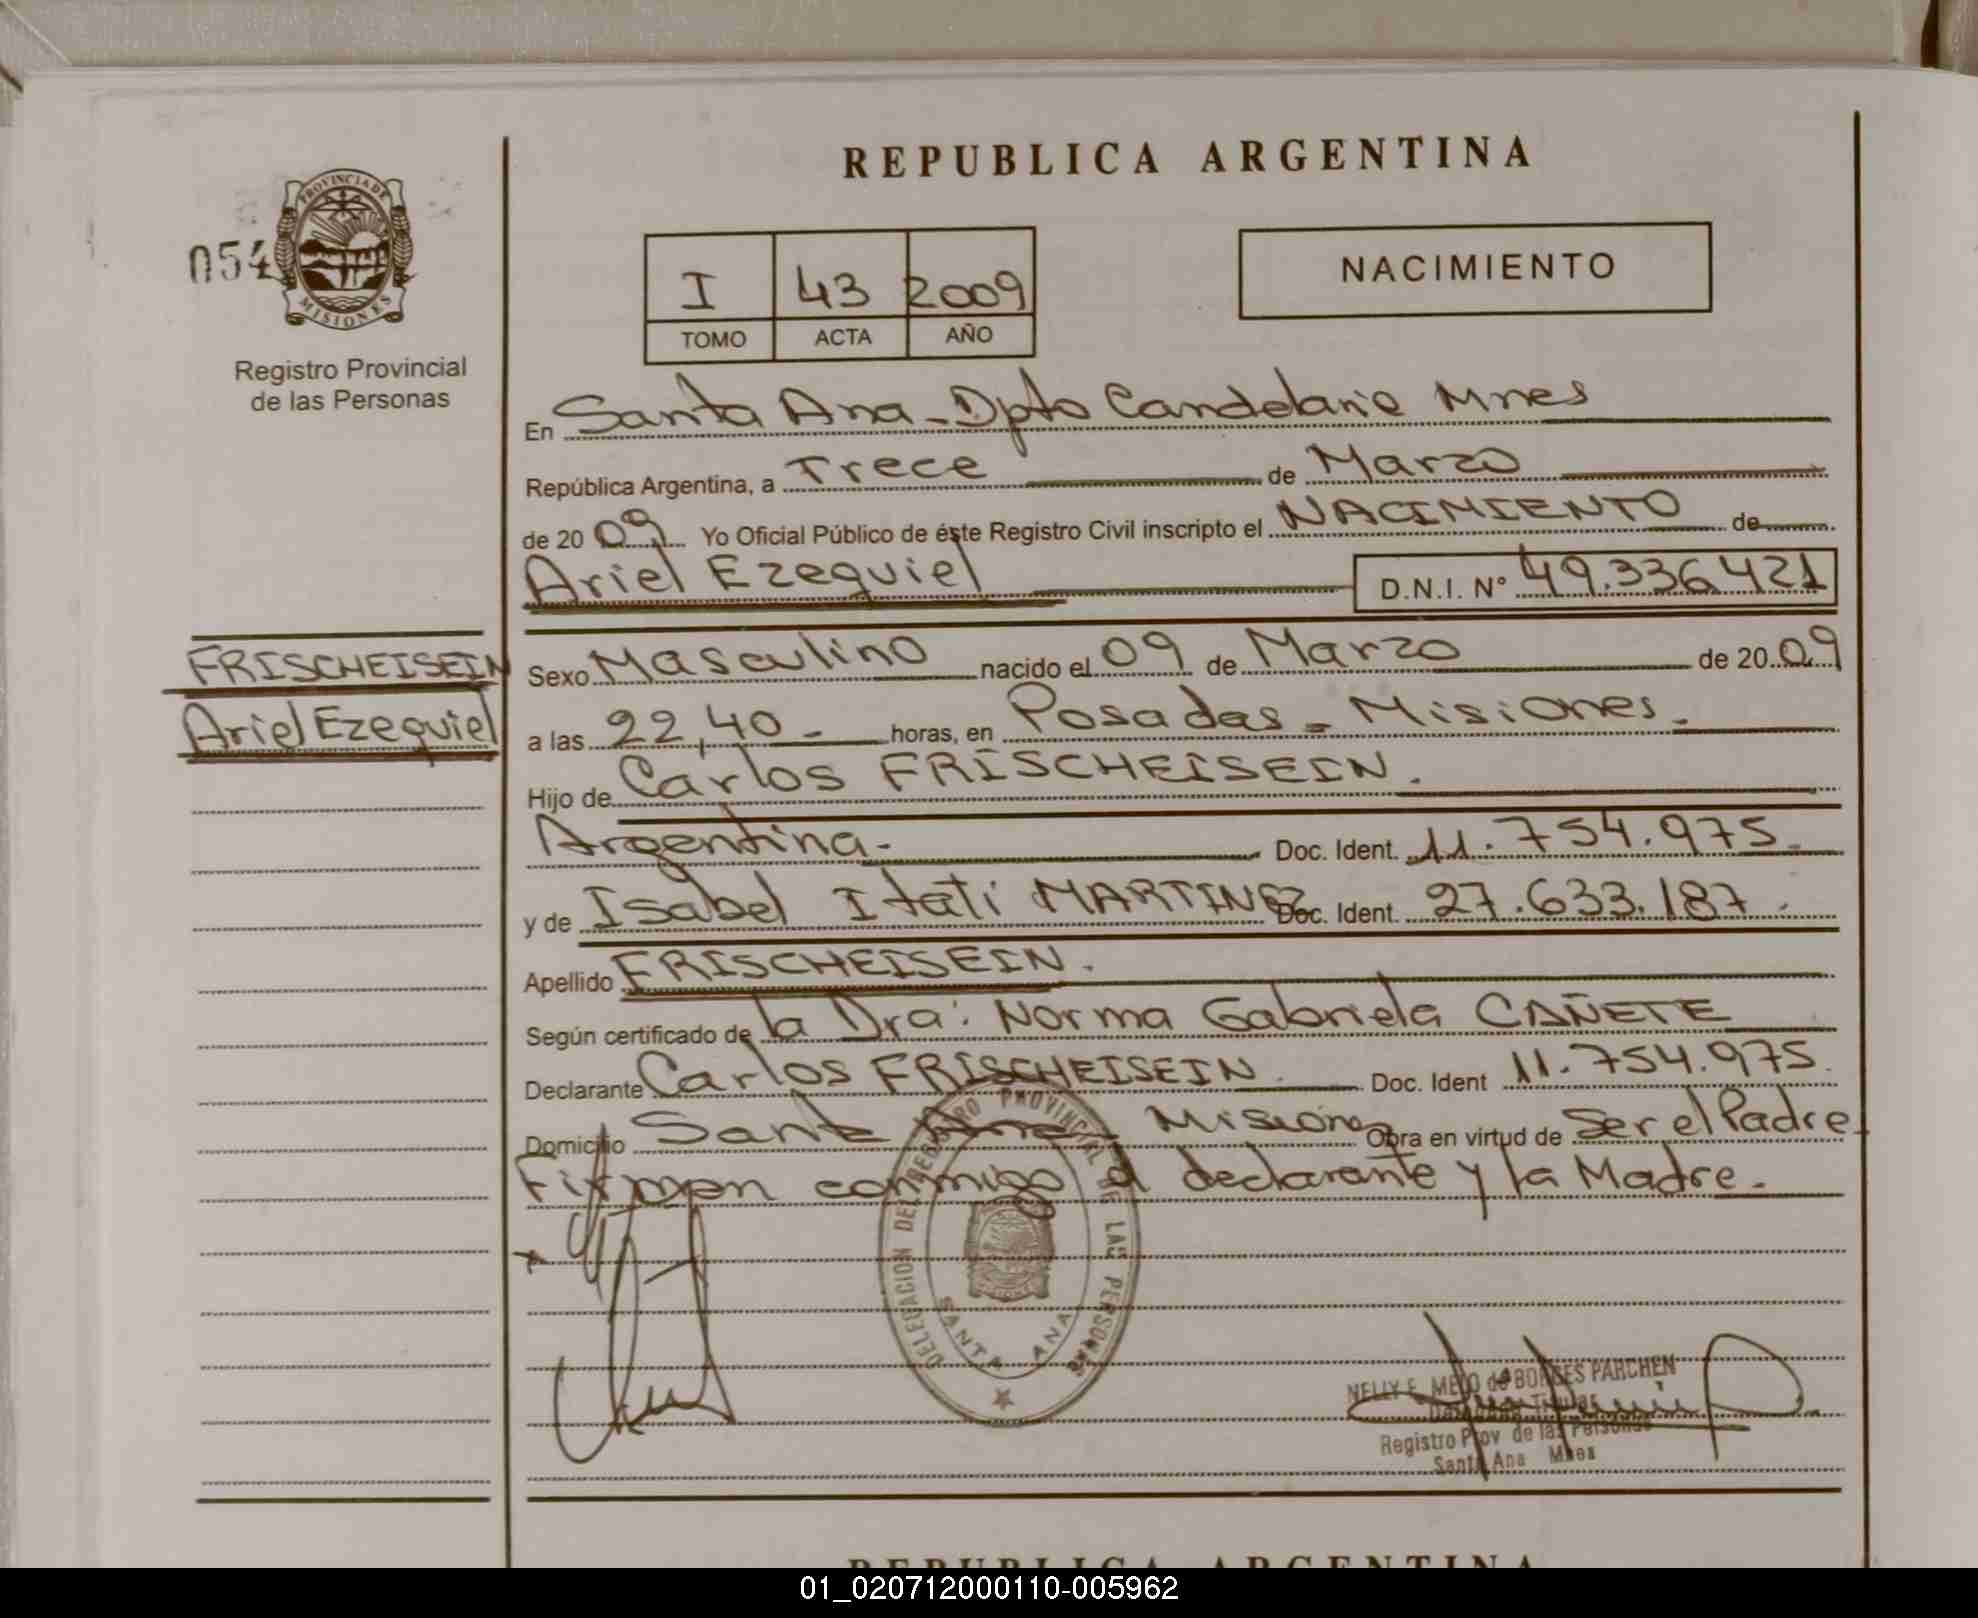 REPUBLICA ARGENTINA
PROVINCIA DE
MISIONES
054
Registro Provincial
de las Personas
I 43 2009
TOMO ACTA AÑO
NACIMIENTO
En Santa Ana - Dpto Candelaria Mnes
República Argentina, a Trece de Marzo
de 2009 Yo Oficial Público de éste Registro Civil inscripto el NACIMIENTO de
Ariel Ezequiel D.N.I. N° 49.336421
FRISCHEISEIN
Ariel Ezequiel
Sexo Masculino nacido el 09 de Marzo de 2009
a las 22,40 - horas, en Posadas - Misiones.
Hijo de Carlos FRISCHEISEIN.
Argentina - Doc. Ident. 11.754.975.
y de Isabel Itati MARTINEZ Doc. Ident. 27.633.187.
Apellido FRISCHEISEIN.
Según certificado de la Dra: Norma Gabriela CAÑETE
Declarante Carlos FRISCHEISEIN. Doc. Ident 11.754.975.
Domicilio Santa Ana - Misiones Obra en virtud de Ser el Padre.
Firman conmigo el declarante y la Madre.
DELEGACION DEL REGISTRO PROVINCIAL DE LAS PERSONAS
SANTA ANA
NELLY E. MELO de BORGES PARCHEN
Registro Prov de las Personas
Santa Ana Mnes
REPUBLICA ARGENTINA
01_020712000110-005962